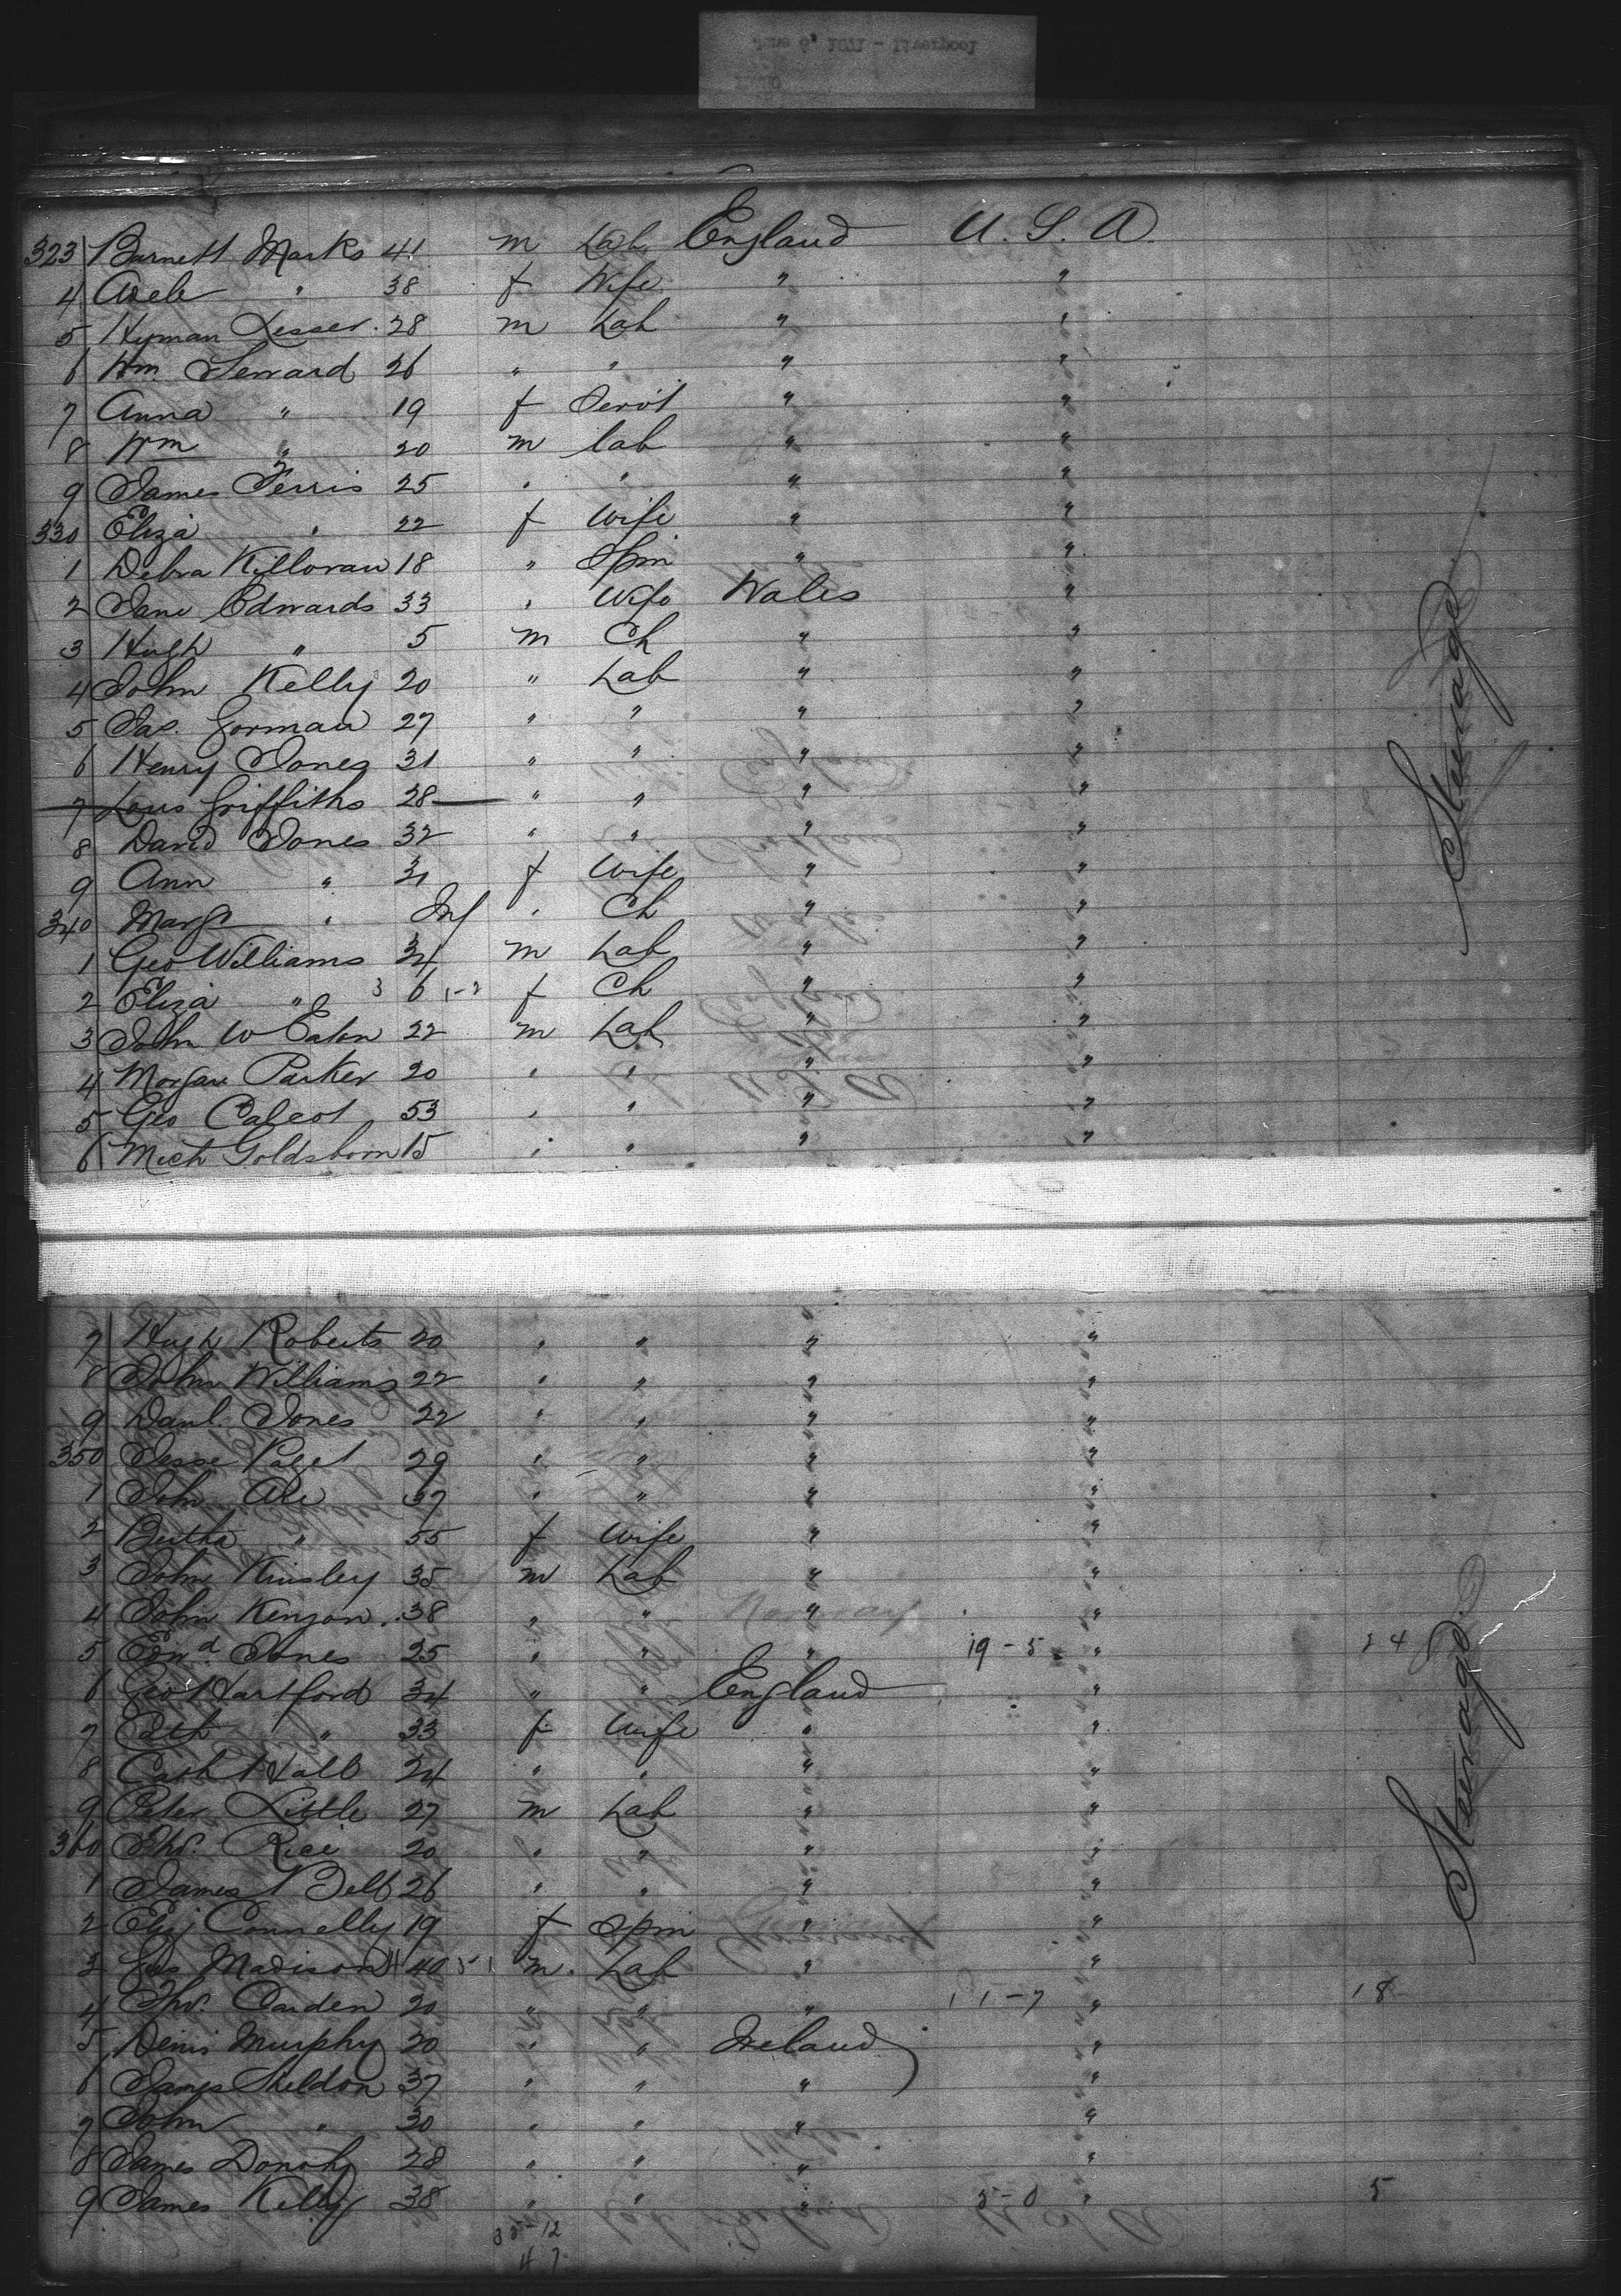 June 6, 1871 - Liverpool
323 Barnett Marks 41 m Lab England U. S. A
4 Adele " 38 f Wife " "
5 Hyman Lesser 28 m Lab " "
6 Wm. Seward 26 " " " "
7 Anna " 19 f Servt " "
8 Wm " 20 m lab " "
9 James Ferris 25 " " " "
330 Eliza " 22 f Wife " "
1 Debra Killoran 18 " Spin " "
2 Jane Edwards 33 " Wife Wales "
3 Hugh " 5 m Ch " "
4 John Kelly 20 " Lab " "
5 Jas. Gorman 27 " " " "
6 Henry Jones 31 " " " "
7 Louis Griffiths 28 " " " "
8 David Jones 32 " " " "
9 Ann " 31 f Wife " "
340 Margt " Inf " Ch " "
1 Geo Williams 34 m Lab " "
2 Eliza " 3 6 1-2 f Ch " "
3 John W Eaton 22 m Lab " "
4 Morgan Parker 20 " " " "
5 Geo 53 " " " "
6 Mich Goldsborn 15 " " " "
Steerage
7 Hugh Roberts 20 " " " "
8 John Williams 22 " " " "
9 Danl. Jones 22 " " " "
350 Jesse Paget 29 " " " "
1 John 37 " " " "
2 Bertha " 55 f Wife " "
3 John Kinsley 35 m Lab " "
4 John Kenyon 38 " " " "
5 Edwd. Jones 25 " " " 19-5 " 24
6 Geo Hartford 34 " " England "
7 Cath " 33 f Wife " "
8 Cath Hall 24 " " " "
9 Peter Little 27 m Lab " "
360 Thos. Rice 20 " " " "
1 James Bell 26 " " " "
2 Eliz Connelly 19 f Spin " "
3 Madison 40 m Lab " "
4 Thos. Carden 20 " " " 11-7 " 18
5 Denis Murphy 20 " " Ireland "
6 James Sheldon 37 " " " "
7 John " 30 " " " "
8 James Donohy 28 " " " "
9 James Kelly 38 " " " 5-0 " 5
35-12
47
Steerage